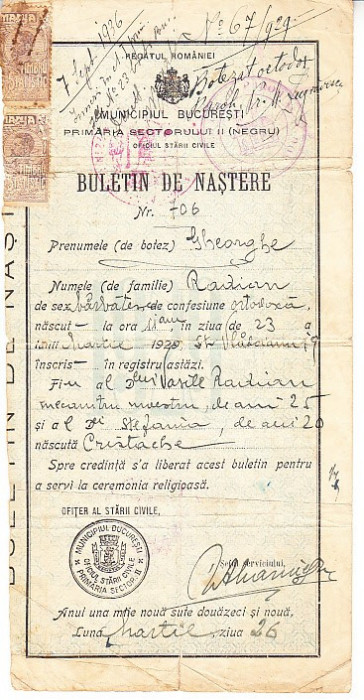 7 Sept. 1936
No 67/929
REGATUL ROMÂNIEI
Botezat ortodox
Paroh, Pr. M.
MUNICIPIUL BUCUREȘTI
PRIMĂRIA SECTORULUI II (NEGRU)
OFICIUL STĂRII CIVILE
BULETIN DE NAȘTERE
Nr. 706
Prenumele (de botez) Gheorghe
Numele (de familie) Radian
de sex bărbătesc de confesiune ortodoxă,
născut la ora 11 am în ziua de 23 a
lunii Martie 1929, St.
înscris în registru astăzi.
Fiu al D-lui Vasile Radian
mecanic, de ani 25
și al D-nei Stefania, de ani 20
născută Cristache
Spre credință s'a liberat acest buletin pentru
a servi la ceremonia religioasă.
OFIȚER AL STĂRII CIVILE,
Șeful serviciului,
MUNICIPIUL BUCUREȘTI
OFICIUL STĂRII CIVILE
PRIMĂRIA SECTOR. II
Anul una mie nouă sute douăzeci și nouă,
Luna Martie ziua 26
BULETIN DE NAȘT